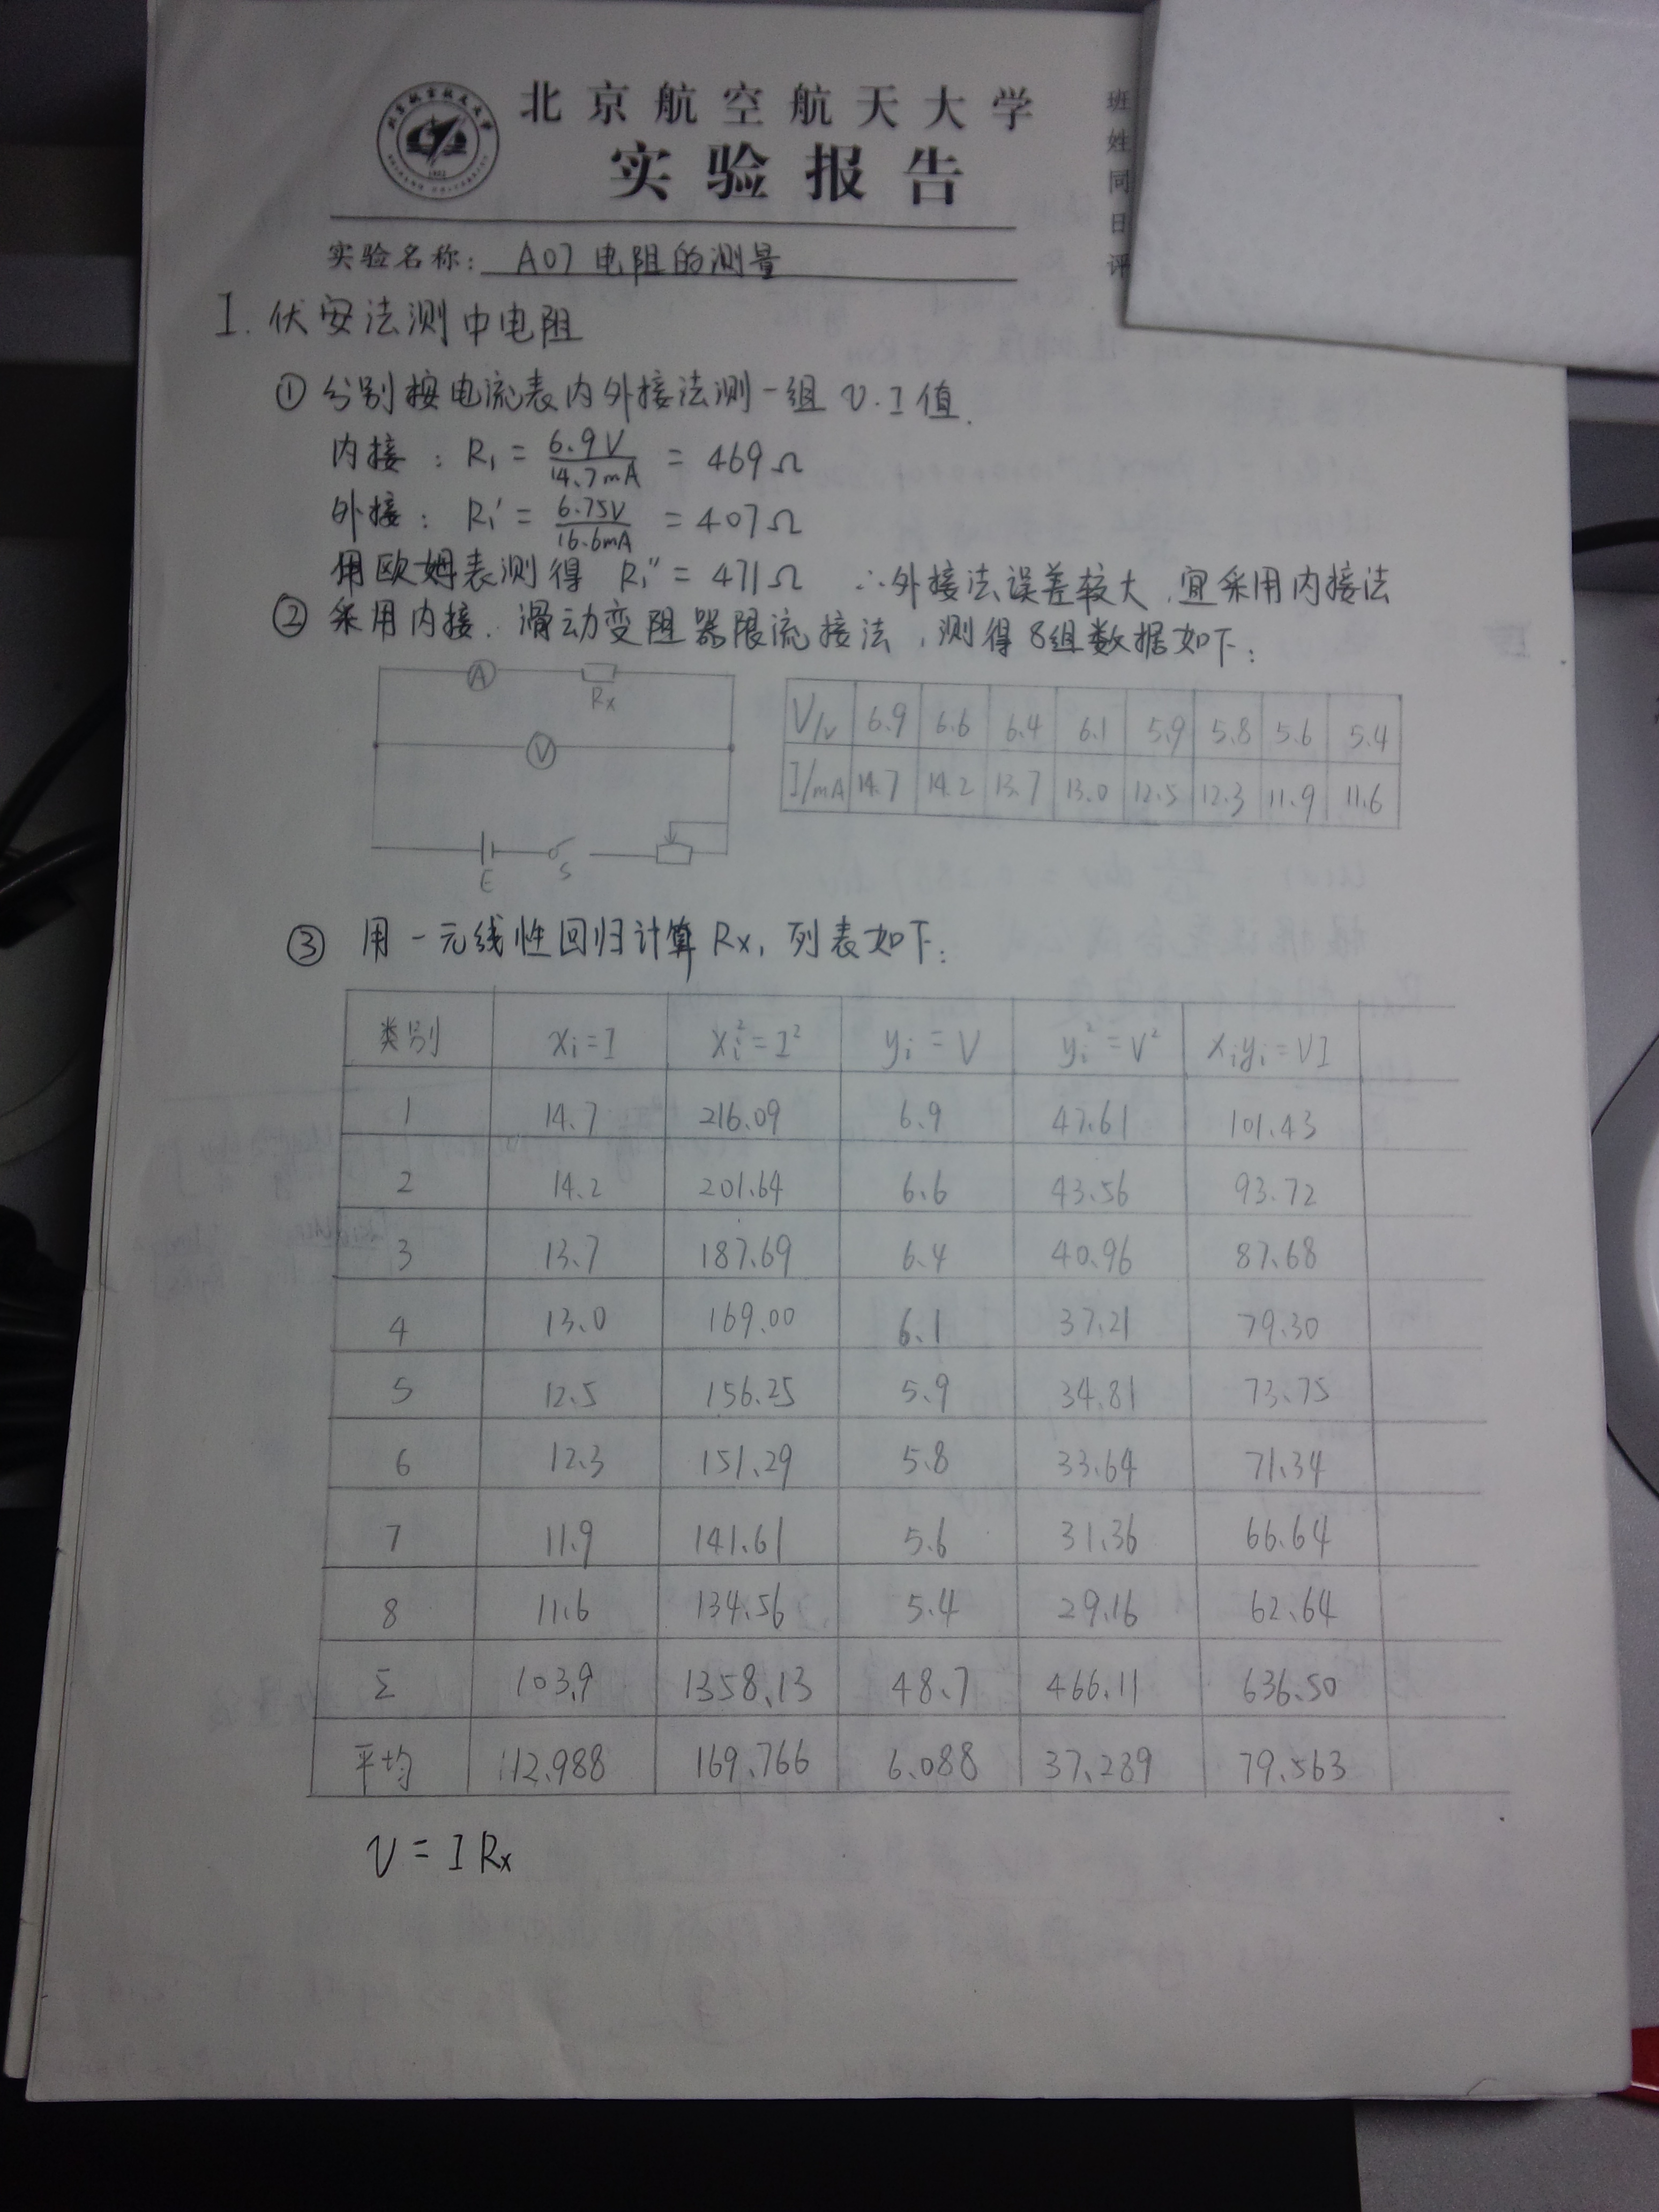 北京航空航天大学
实验报告
班
姓
同
日
评
实验名称: A07 电阻的测量
I. 伏安法测中电阻
① 分别按电流表内外接法测一组 V.I 值.
内接: R₁ = 6.9V/14.7mA = 469Ω
外接: R₁' = 6.75V/16.6mA = 407Ω
用欧姆表测得 R₁'' = 471Ω ∴外接法误差较大,宜采用内接法
② 采用内接、滑动变阻器限流接法,测得8组数据如下:
A Rx
V
E S
V/v 6.9 6.6 6.4 6.1 5.9 5.8 5.6 5.4
I/mA 14.7 14.2 13.7 13.0 12.5 12.3 11.9 11.6
③ 用一元线性回归计算Rx, 列表如下:
类别 xi=I xi²=I² yi=V yi²=V² xiyi=VI
1 14.7 216.09 6.9 47.61 101.43
2 14.2 201.64 6.6 43.56 93.72
3 13.7 187.69 6.4 40.96 87.68
4 13.0 169.00 6.1 37.21 79.30
5 12.5 156.25 5.9 34.81 73.75
6 12.3 151.29 5.8 33.64 71.34
7 11.9 141.61 5.6 31.36 66.64
8 11.6 134.56 5.4 29.16 62.64
Σ 103.9 1358.13 48.7 466.11 636.50
平均 12.988 169.766 6.088 37.289 79.563
V = I Rx